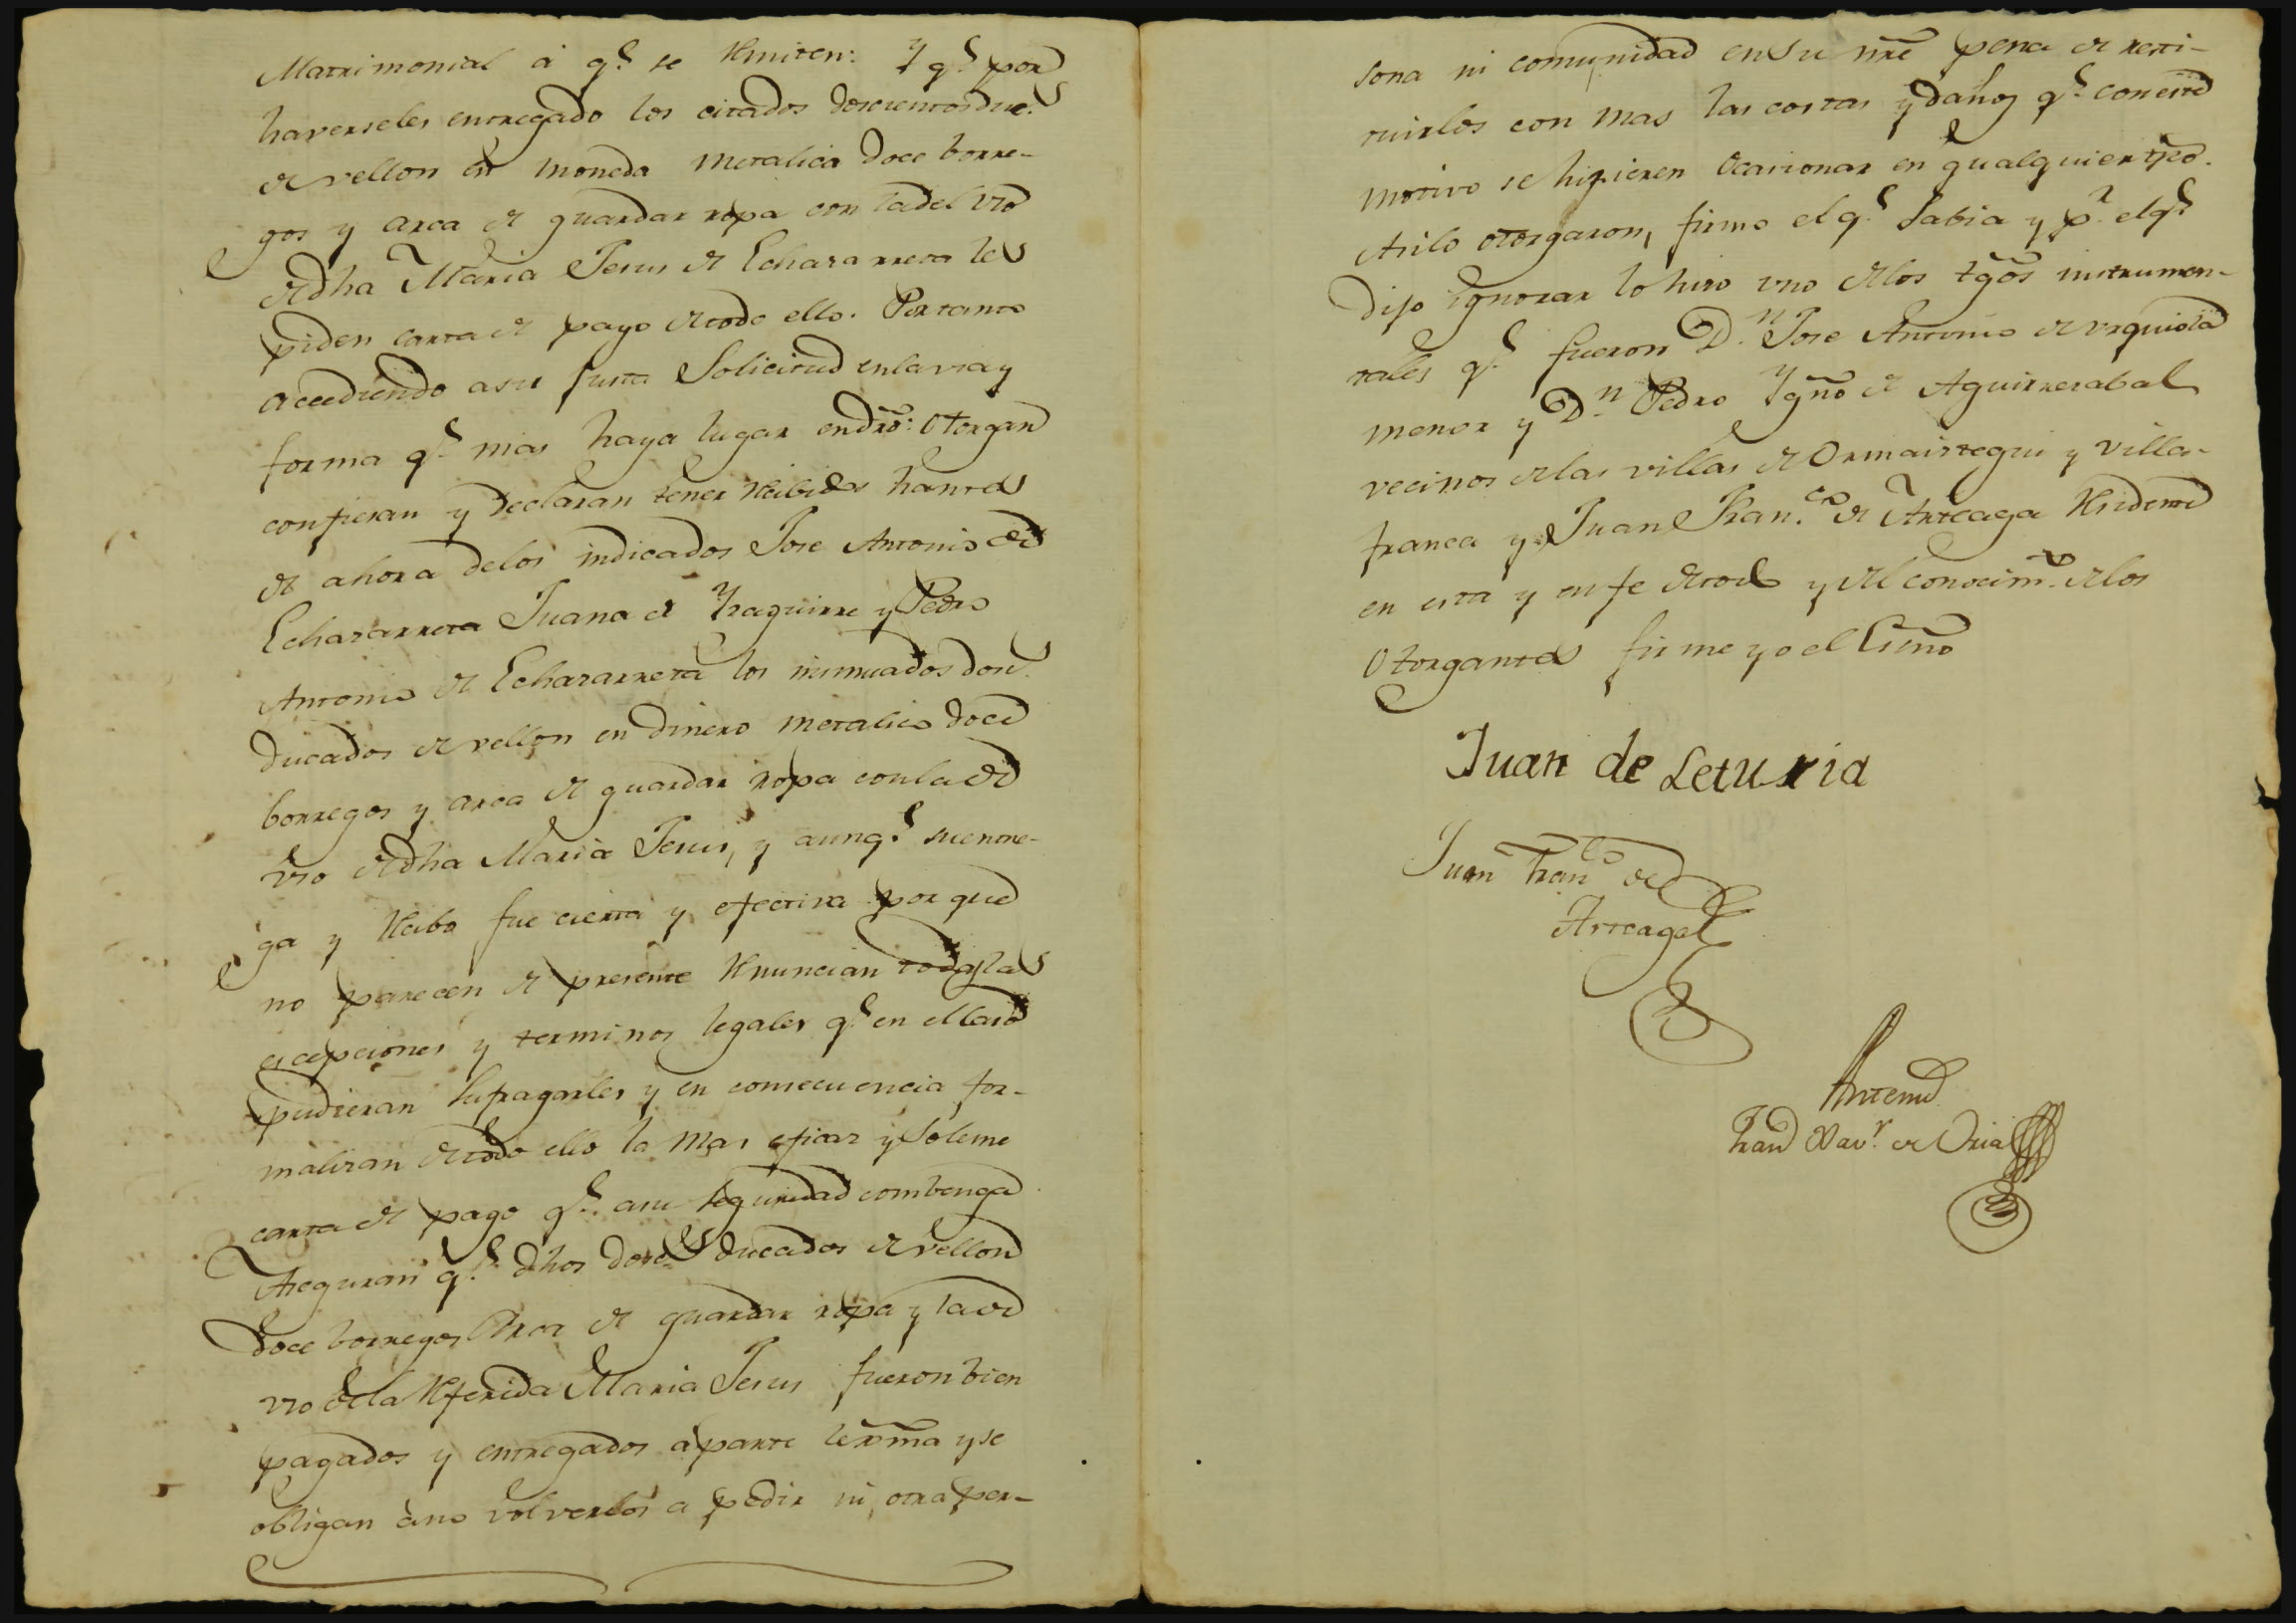 Matrimonial á q.e se remiten: Y q.e por
haverseles entregado los citados doscientos duc.s
de vellon en moneda metalica doce borre-
gos y arca de guardar ropa con la del uso
de dha Maria Jesus de Echararreta les
piden carta de pago de todo ello. Por tanto
accediendo a su justa Solicitud en la via y
forma q.e mas haya lugar en dro: Otorgan
confiesan y declaran tener recibidos hantes
de ahora delos indicados Jose Antonio de
Echararreta Juana de Yraguirre y Pedro
Antonio de Echararreta los insinuados dosc.s
ducados de vellon en dinero metalico doce
borregos y arca de guardar ropa con la de
uso de dha Maria Jesus, y aunq.e su entre-
ga y recibo fue cierta y efectiva por que
no parecen de presente renuncian todas las
escepciones y terminos legales q.e en el caso
pudieran sufragarles y en consecuencia for-
malizan de todo ello la mas eficaz y Solemne
carta de pago q.e a su seguridad combenga
Aseguran q.e dhos dosc.s ducados de vellon
doce borregos Arca de guardar ropa y la de
uso de la referida Maria Jesus fueron bien
pagados y entregados á parte lexma y se
obligan áno volverlos a pedir ni otra per-
sona ni comunidad en su nre pena de resti-
tuirlos con mas las costas y daños q.e con este
motivo se hizieren Ocasionar en qualquier tpo.
Asilo otorgaron, firmo el q.e Sabia y p.r elq.e
Dijo ignorar lo hizo uno delos tgos instrumen-
tales q.e fueron D.n Jose Antonio de Urquiola
menor y D.n Pedro Ygno de Aguirrezabal
vecinos delas villas de Ormaiztegui y Villa-
franca y Juan Fran.co de Arteaga residente
en esta y en fe de todo y del conocim.to delos
Otorgantes firme yo el Esno
Juan de Leturia
Juan Fran.co de
Arteaga
Antemi
Fran.co Xav.r de Oria